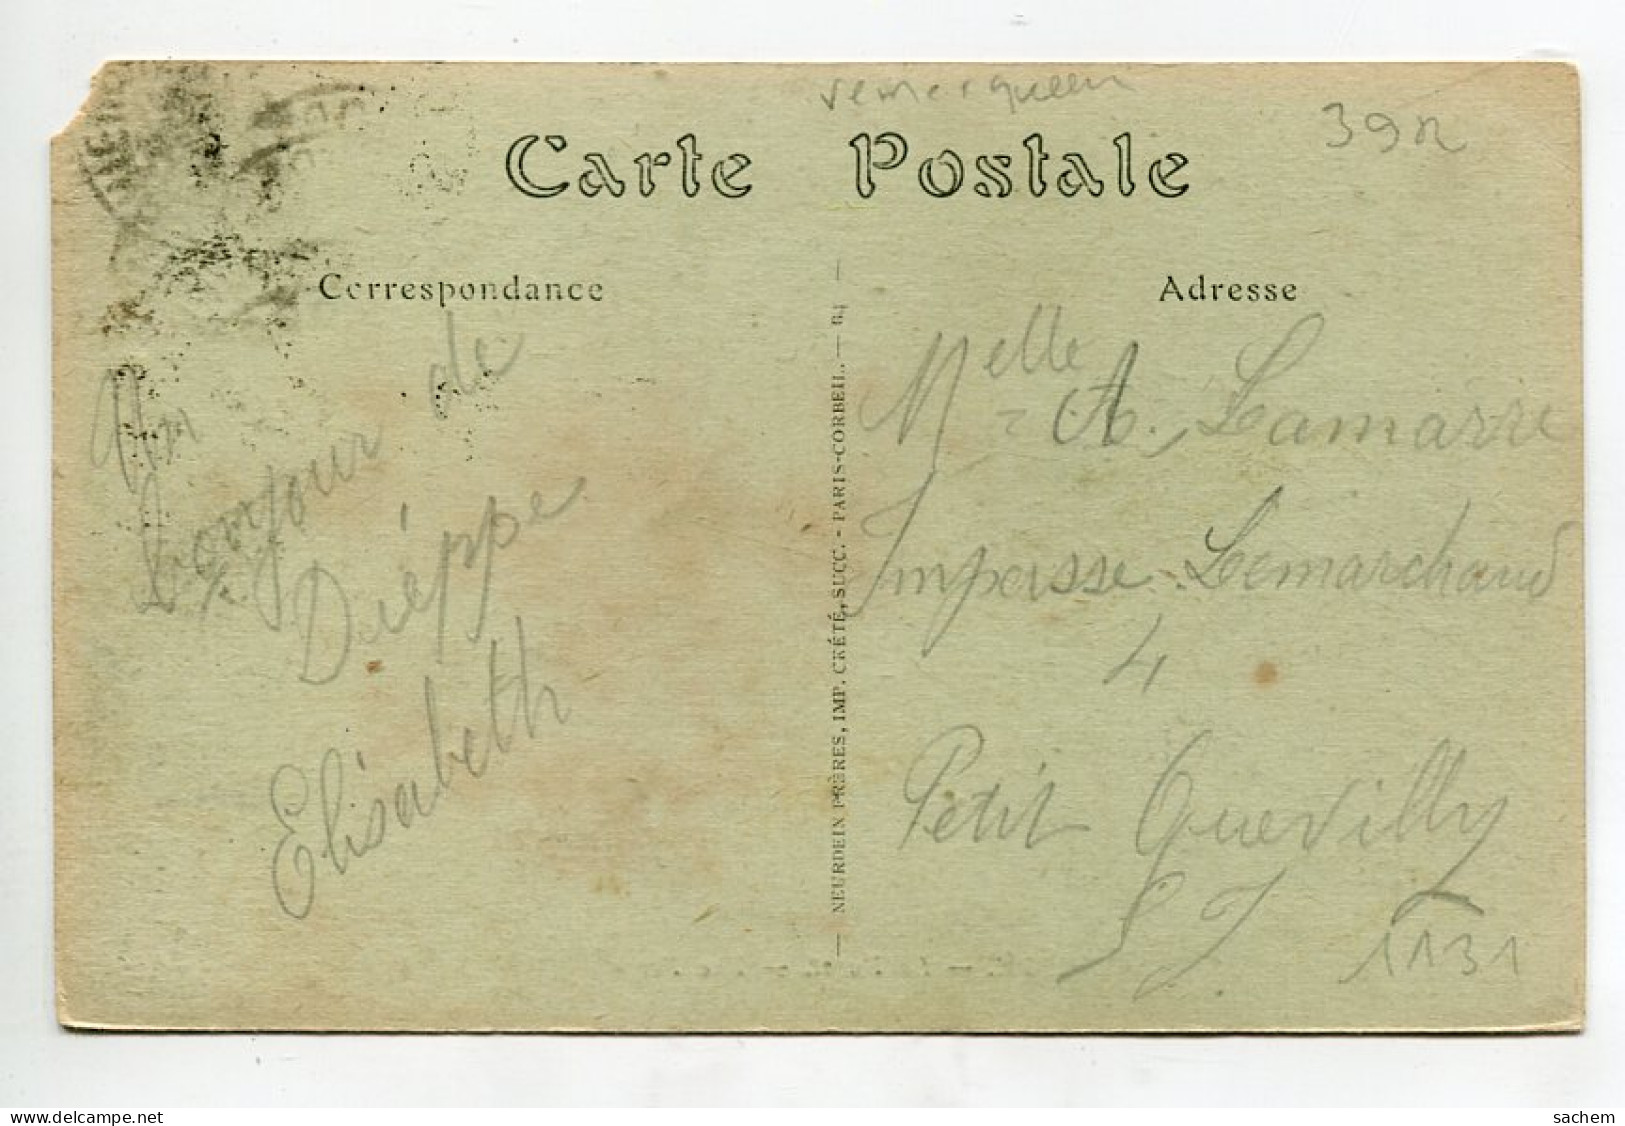 39n
Carte Postale
Correspondance
Adresse
Un
bonjour de
Dieppe
Elisabeth
NEURDEIN FRÈRES, IMP. CRÉTÉ, SUCC. - PARIS-CORBEIL. — 64
Melle A. Lamarre
Impasse Lemarchand
4
Petit Quevilly
S. I.
1131
delcampe.net
sachem